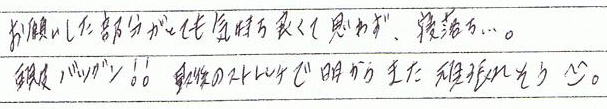 お願いした部分がとても気持ち良くて思わず、寝落ち…。
頭皮バツグン!! 最後のストレッチで明日からまた頑張れそう